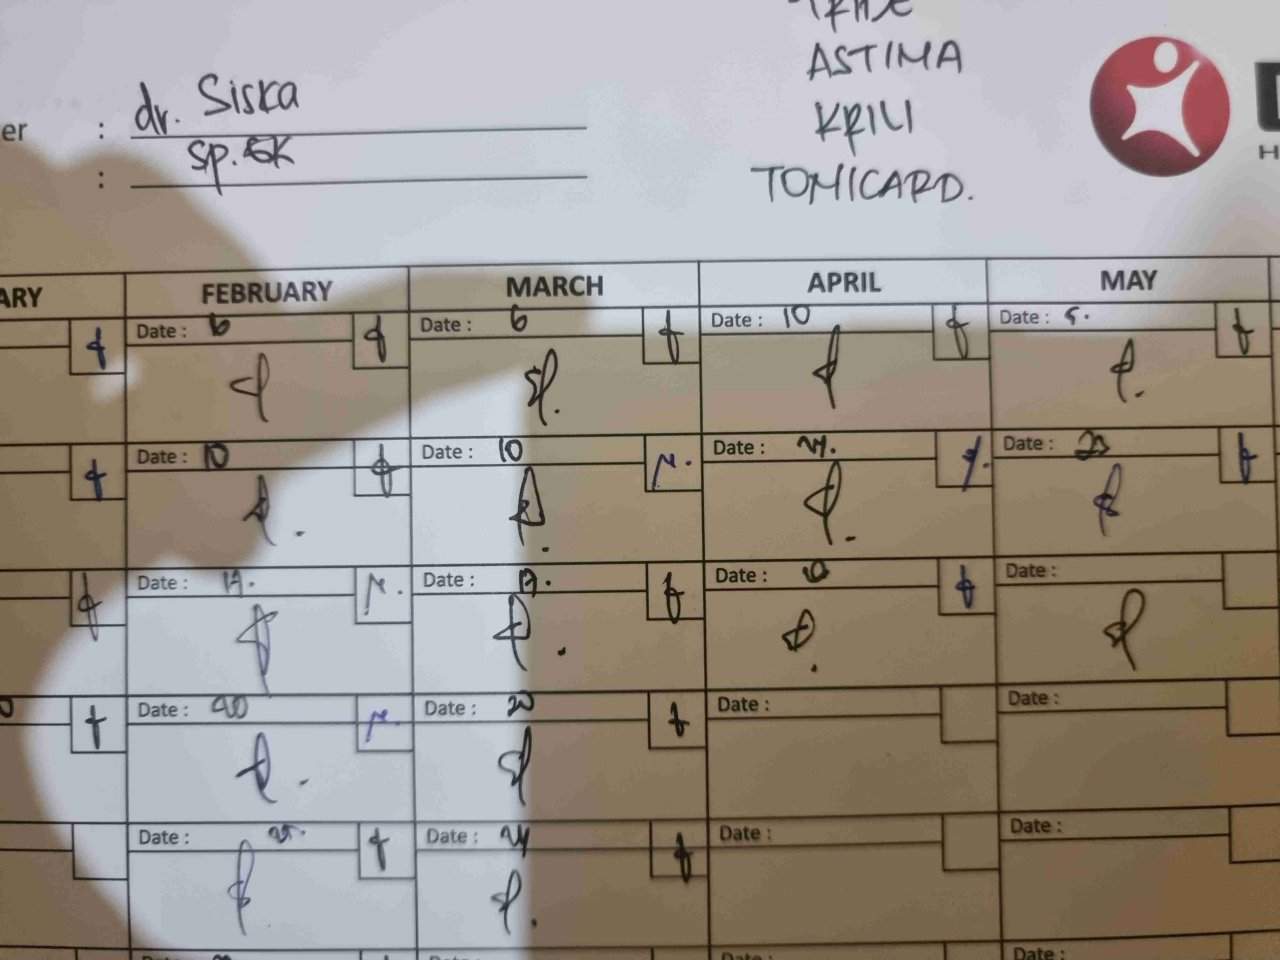 ASTIMA
KRILI
TOMICARD.
er : dr. Siska
: sp.GK
ARY FEBRUARY MARCH APRIL MAY
Date : 6 Date : 6 Date : 10 Date : 5.
Date : 10 Date : 10 Date : 24. Date : 23
Date : 17. Date : 17. Date : 10 Date :
Date : 20 Date : 20 Date : Date :
Date : 25. Date : 24 Date : Date :
Date : Date : Date : Date :